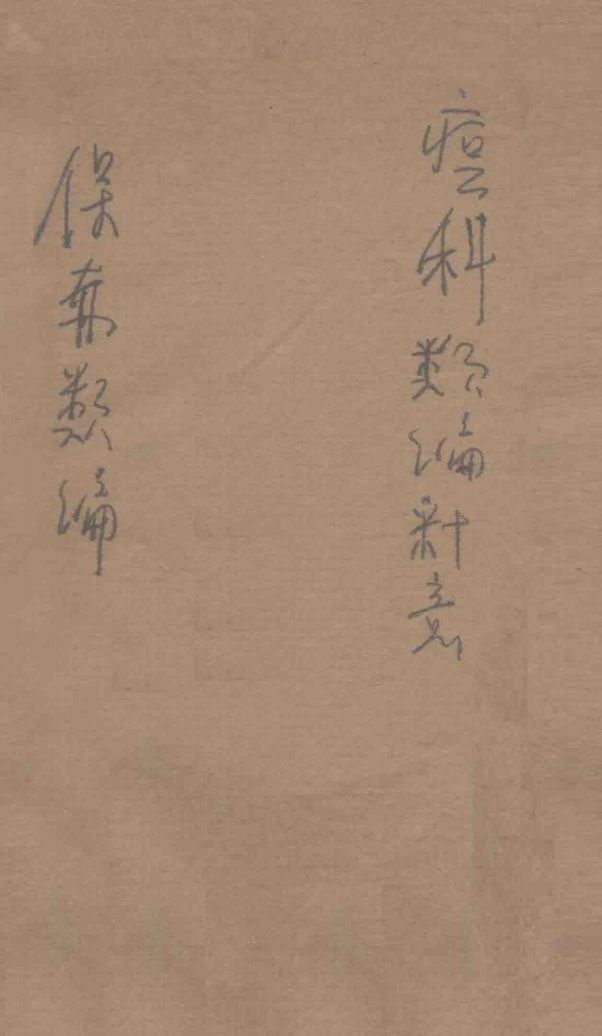 痘科類编釋意
保赤類编